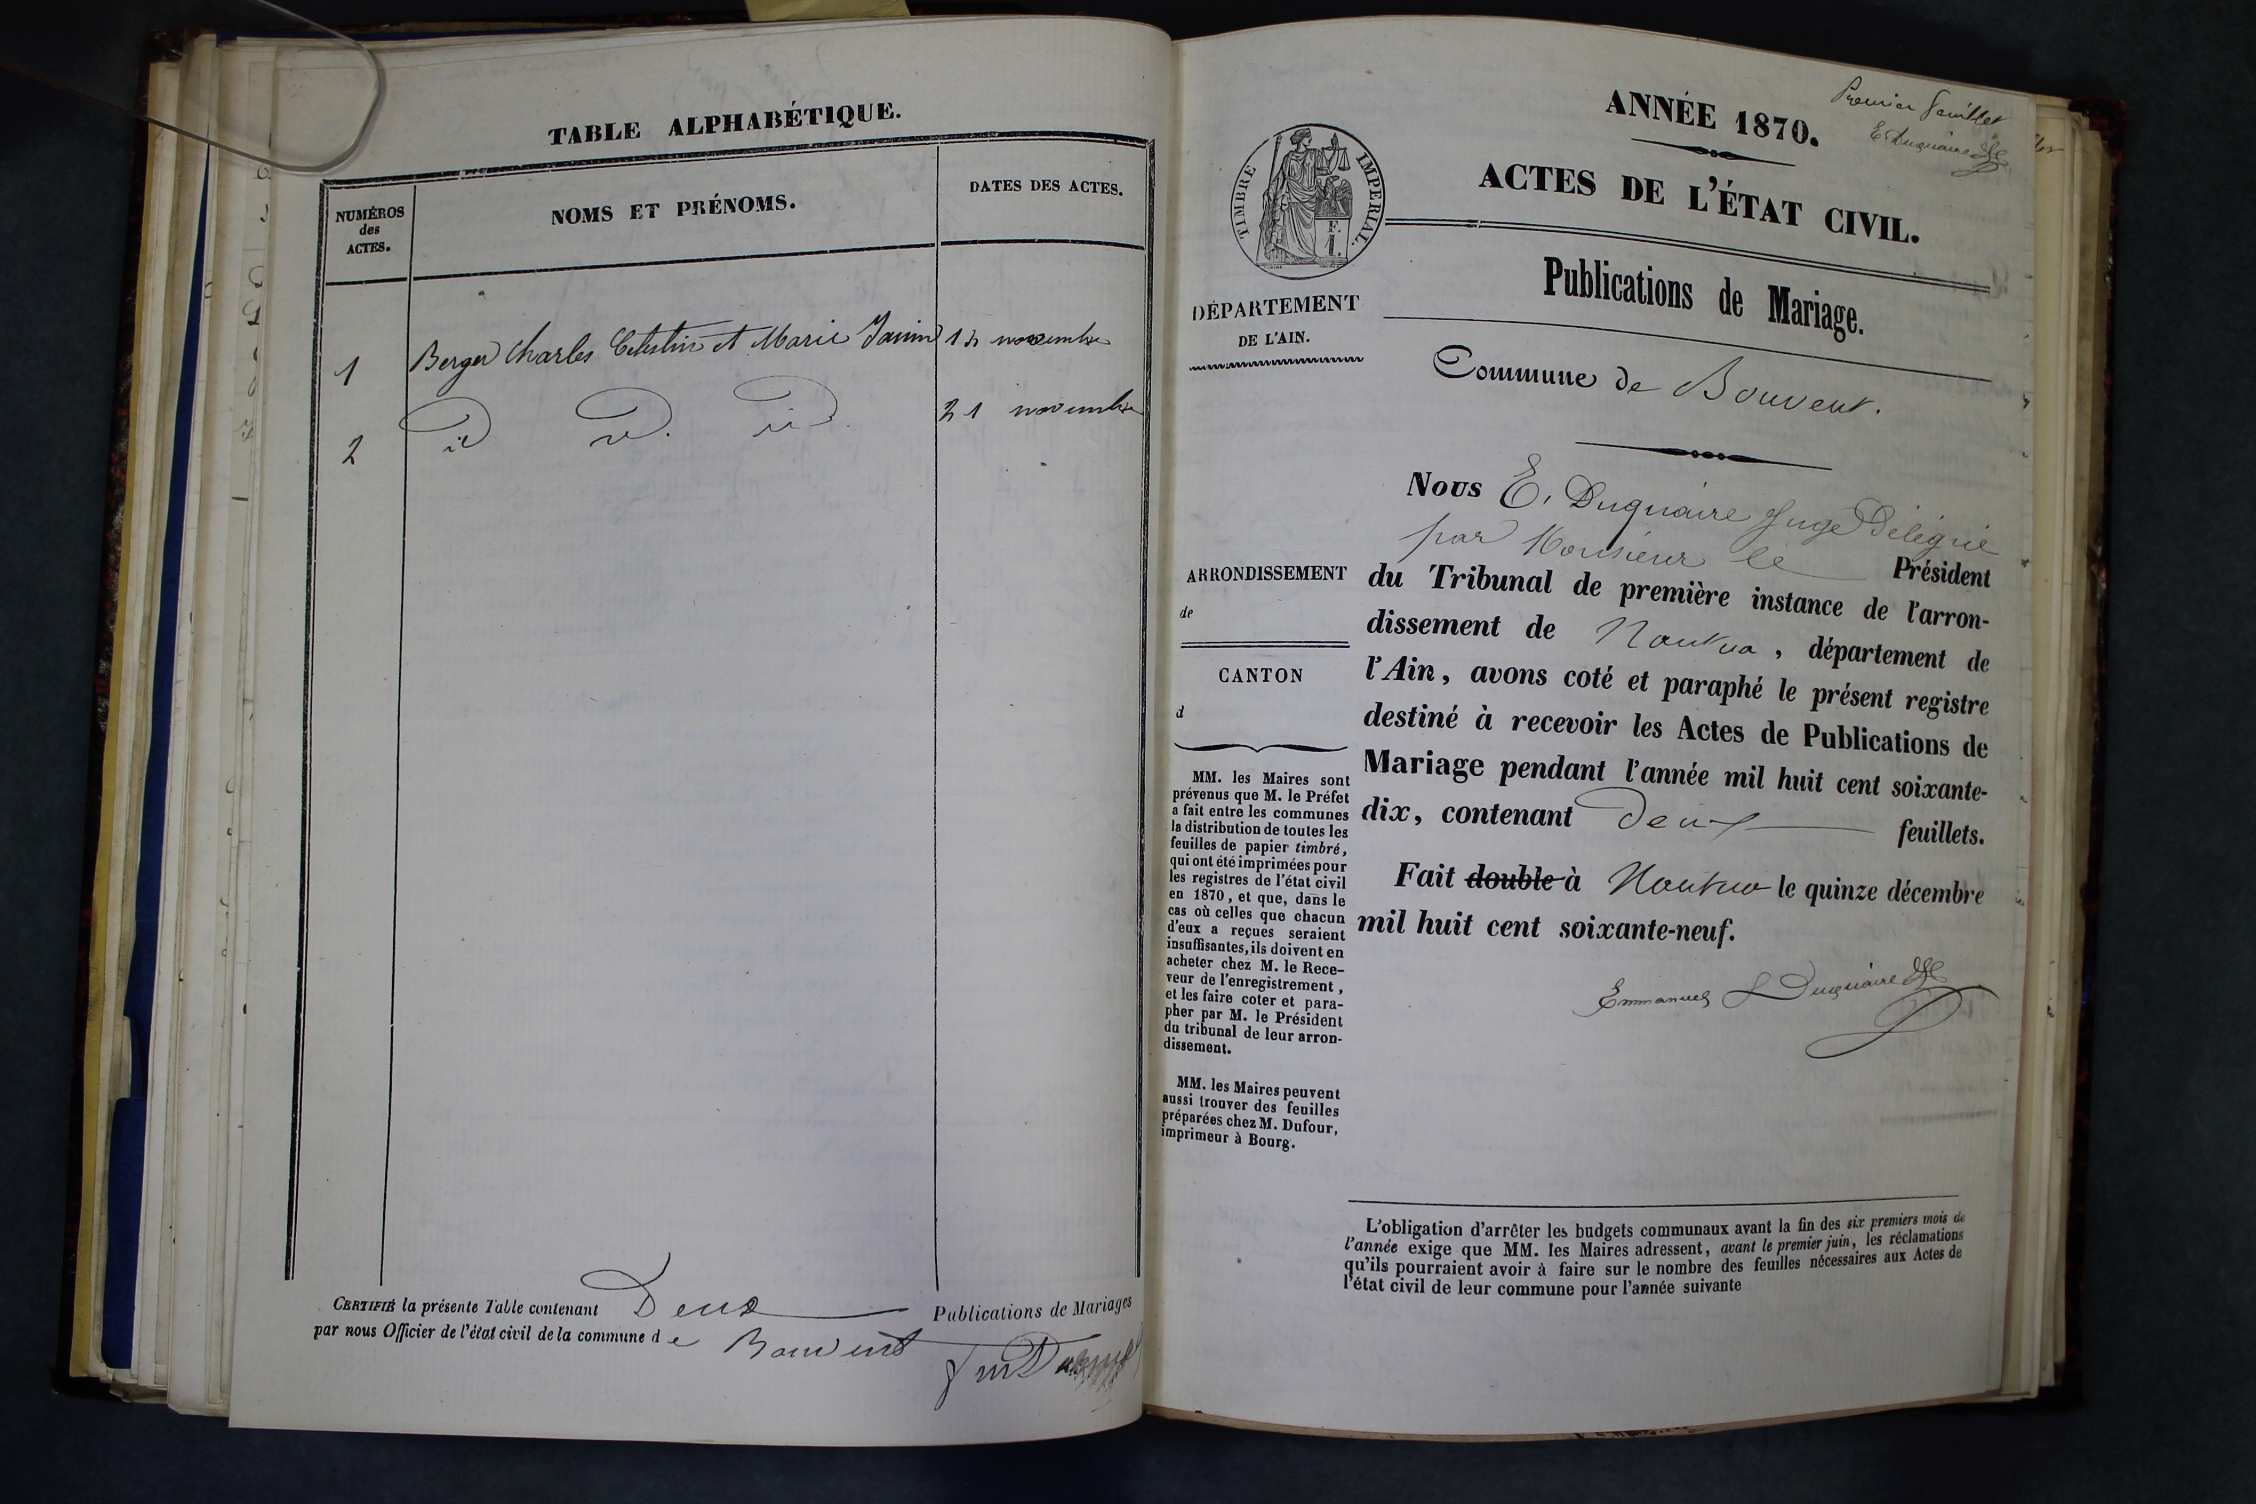 TABLE ALPHABÉTIQUE.
NUMÉROS
des
ACTES.
NOMS ET PRÉNOMS.
DATES DES ACTES.
1 Berger Charles Célestin et Marie Janin 14 novembre
2 id id. id. 21 novembre
CERTIFIÉ la présente Table contenant Deux Publications de Mariages
par nous Officier de l'état civil de la commune de Bouvent
Premier feuillet
E. Duquaire
TIMBRE IMPERIAL.
F.
I.
ANNÉE 1870.
ACTES DE L'ÉTAT CIVIL.
Publications de Mariage.
DÉPARTEMENT
DE L'AIN.
Commune de Bouvent.
ARRONDISSEMENT
de
CANTON
d
MM. les Maires sont
prévenus que M. le Préfet
a fait entre les communes
la distribution de toutes les
feuilles de papier timbré,
qui ont été imprimées pour
les registres de l'état civil
en 1870, et que, dans le
cas où celles que chacun
d'eux a reçues seraient
insuffisantes, ils doivent en
acheter chez M. le Rece-
veur de l'enregistrement,
et les faire coter et para-
pher par M. le Président
du tribunal de leur arron-
dissement.
MM. les Maires peuvent
aussi trouver des feuilles
préparées chez M. Dufour,
imprimeur à Bourg.
Nous E. Duquaire Juge Délégué
par Monsieur le Président
du Tribunal de première instance de l'arron-
dissement de Nantua, département de
l'Ain, avons coté et paraphé le présent registre
destiné à recevoir les Actes de Publications de
Mariage pendant l'année mil huit cent soixante-
dix, contenant Deux feuillets.
Fait double à Nantua le quinze décembre
mil huit cent soixante-neuf.
Emmanuel Duquaire
L'obligation d'arrêter les budgets communaux avant la fin des six premiers mois de
l'année exige que MM. les Maires adressent, avant le premier juin, les réclamations
qu'ils pourraient avoir à faire sur le nombre des feuilles nécessaires aux Actes de
l'état civil de leur commune pour l'année suivante